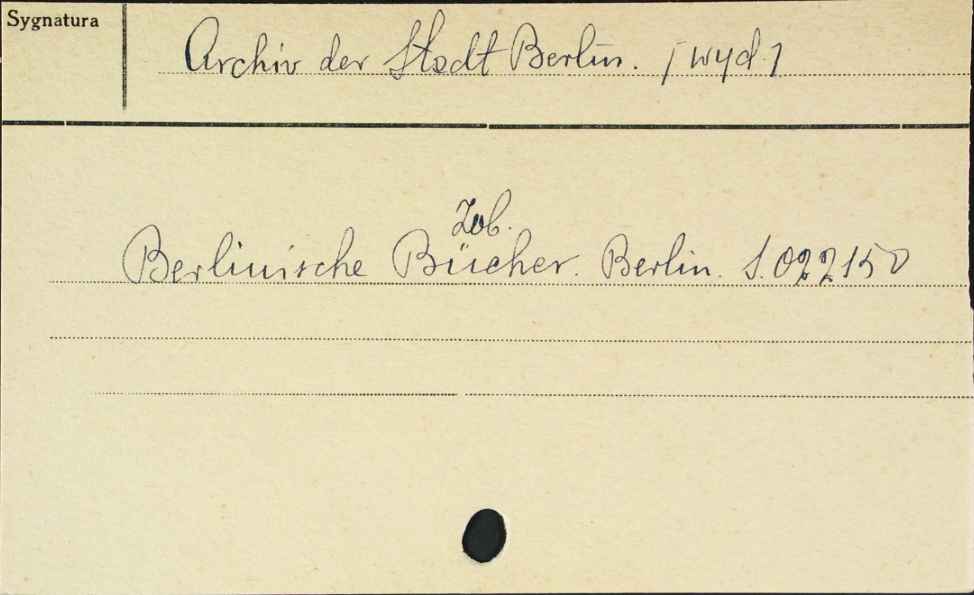 Sygnatura
Archiv der Stadt Berlin. /wyd./
Zob.
Berlinische Bücher. Berlin. S.022150